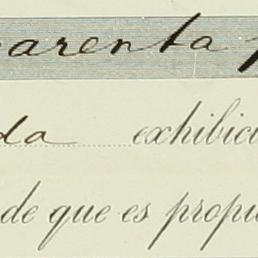 arenta p
da exhibici
de que es propi